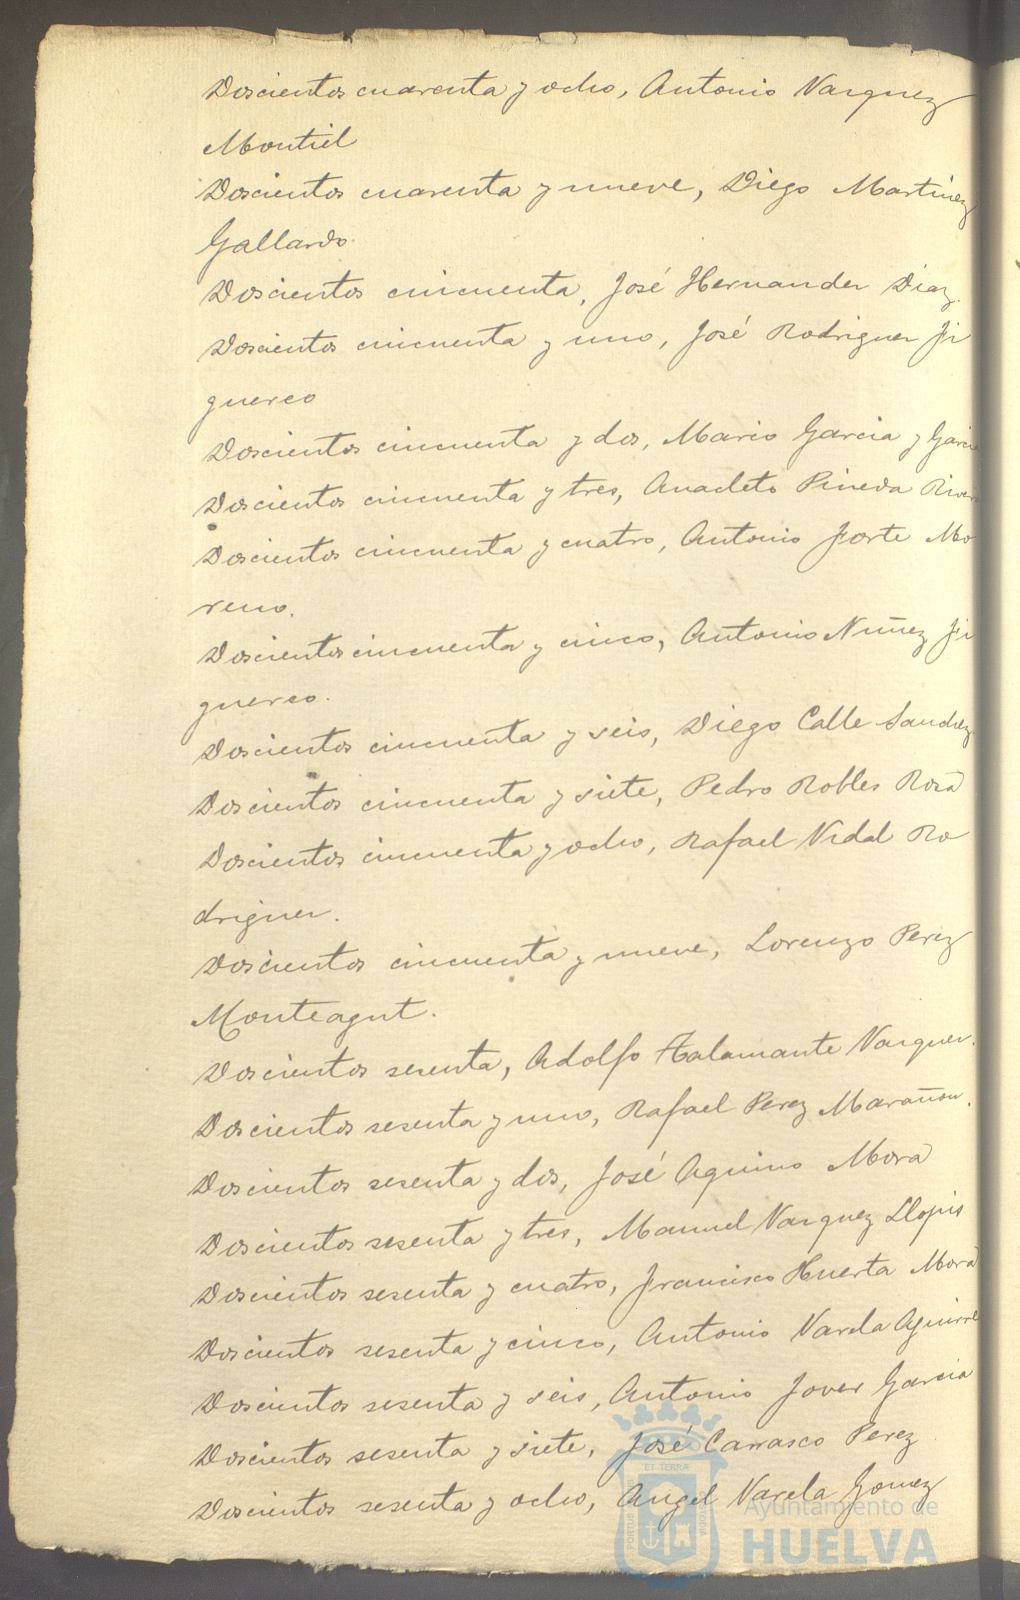 Doscientos cuarenta y ocho, Antonio Vazquez
Montiel
Doscientos cuarenta y nueve, Diego Martinez
Gallardo.
Doscientos cincuenta, José Hernandez Diaz.
Doscientos cincuenta y uno, José Rodriguez Fi
guereo
Doscientos cincuenta y dos, Mario Garcia y Garcia
Doscientos cincuenta y tres, Anacleto Pineda Rivera
Doscientos cincuenta y cuatro, Antonio Forte Mo
reno.
Doscientos cincuenta y cinco, Antonio Nuñez Fi
guereo.
Doscientos cincuenta y seis, Diego Calle Sanchez.
Doscientos cincuenta y siete, Pedro Robles Rosa
Doscientos cincuenta y ocho, Rafael Vidal Ro
driguez.
Doscientos cincuenta y nueve, Lorenzo Perez
Monteagut.
Doscientos sesenta, Adolfo Talamante Vazquez.
Doscientos sesenta y uno, Rafael Perez Marañon.
Doscientos sesenta y dos, José Aquino Mora
Doscientos sesenta y tres, Manuel Vazquez Llopis
Doscientos sesenta y cuatro, Francisco Huerta Mora
Doscientos sesenta y cinco, Antonio Varela Aguirre
Doscientos sesenta y seis, Antonio Jover Garcia
Doscientos sesenta y siete, José Carrasco Perez
Doscientos sesenta y ocho, Angel Varela Gomez
ET TERRÆ
PORTUS
CUSTODIA
Ayuntamiento de
HUELVA